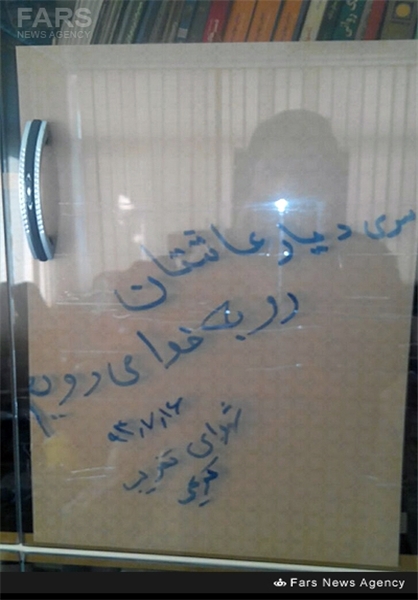 FARS
NEWS AGENCY
سوی دیار عاشقان
رو به خدا می رویم
۹۳،۷،۱۶
شهدای غریب
Fars News Agency